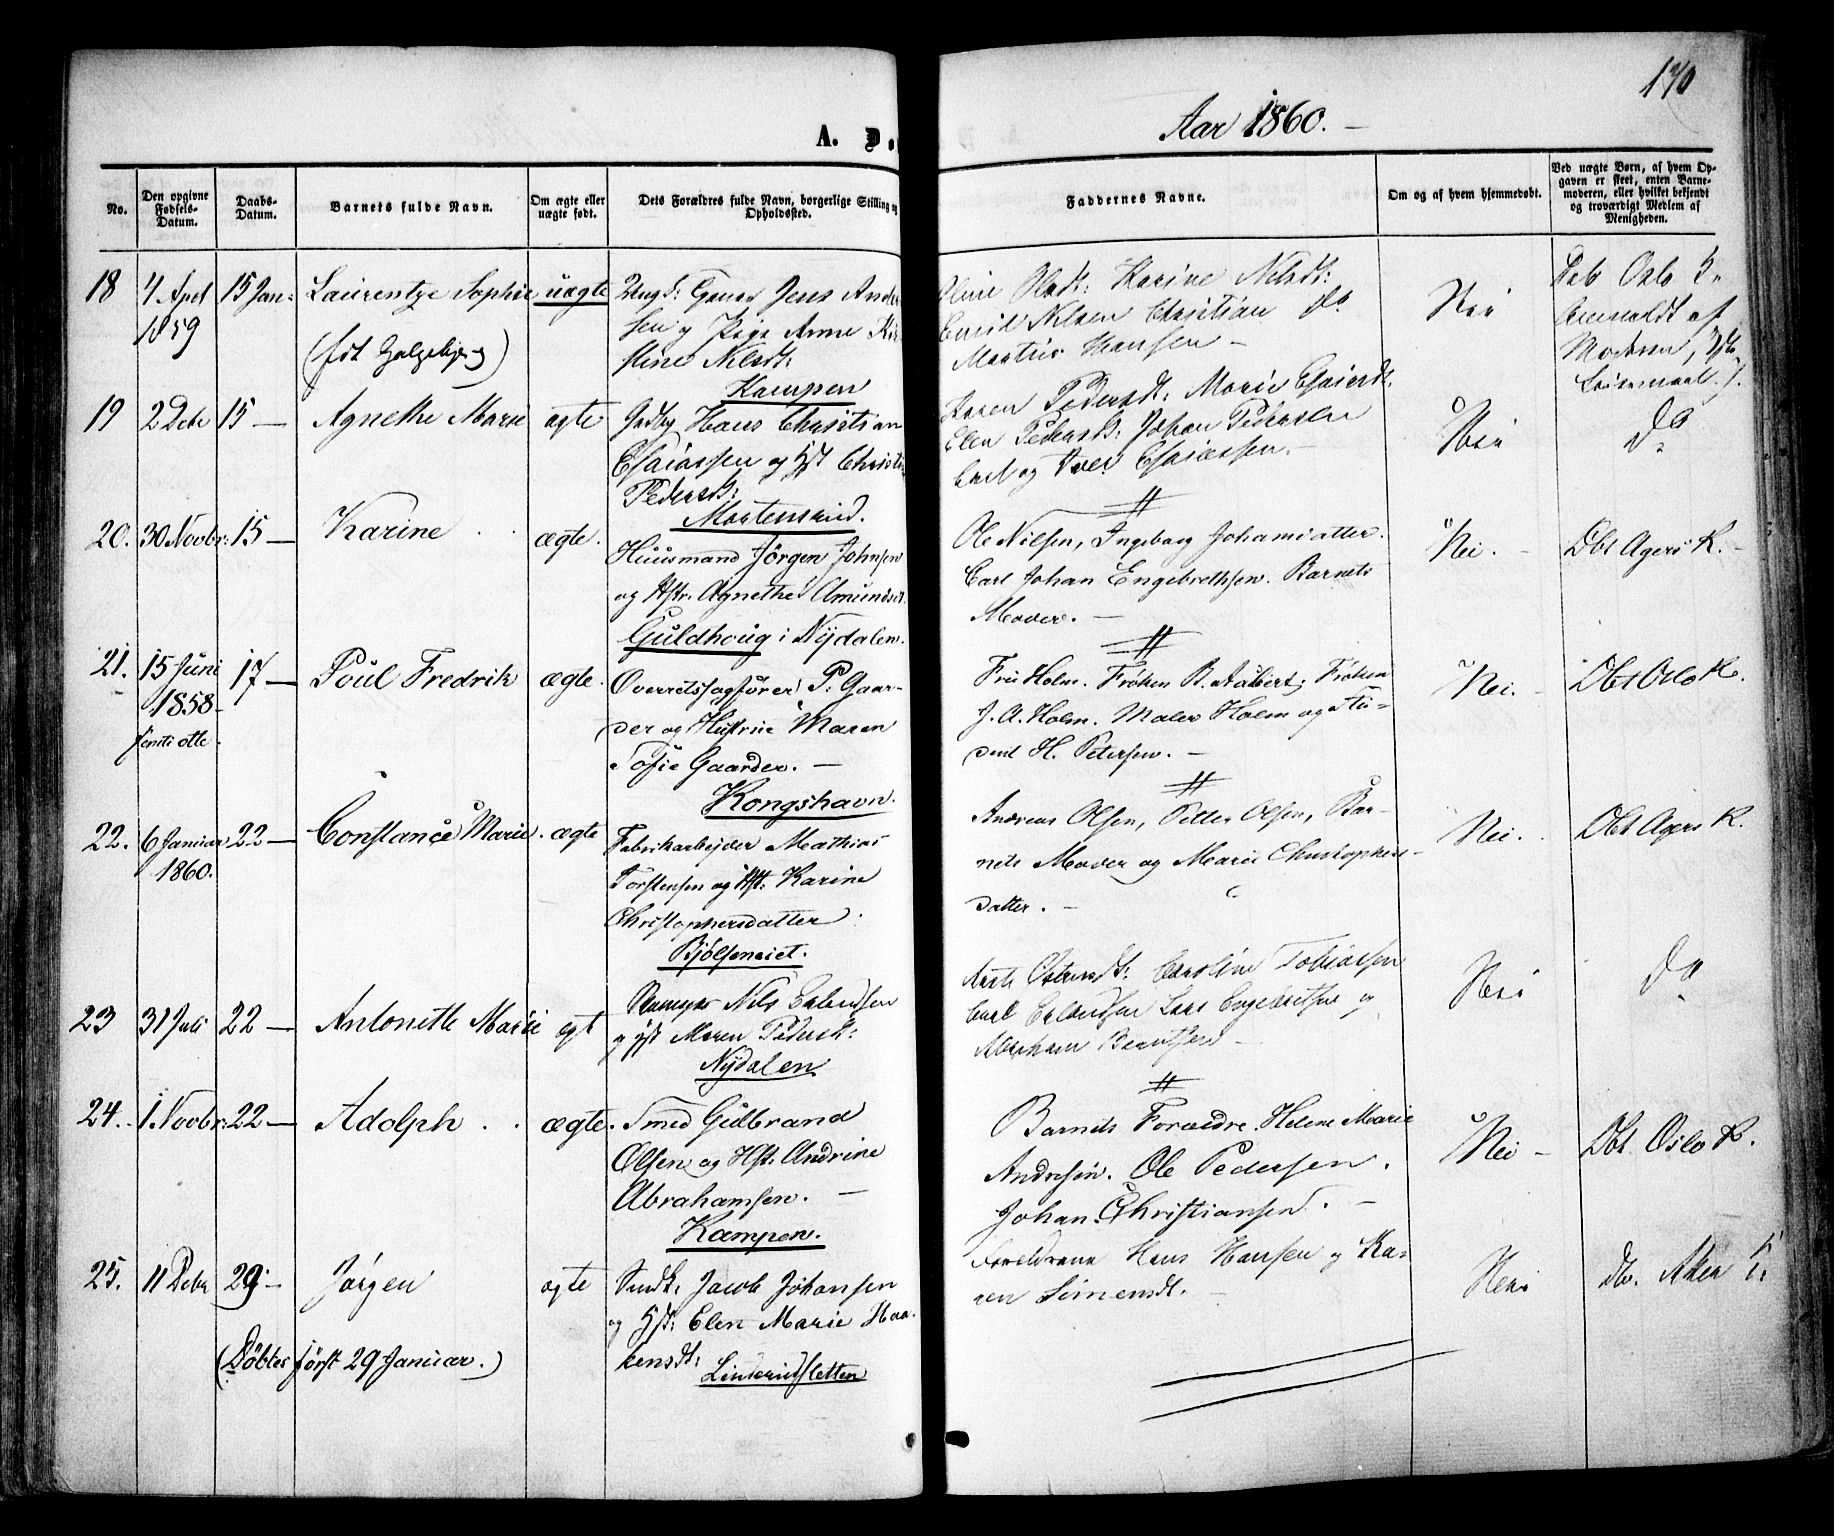 170
Aar 1860.
A. D.
No.
Den opgivne Fødsels-Datum.
Daabs-Datum.
Barnets fulde Navn.
Om ægte eller uægte født.
Dets Forældres fulde Navn, borgerlige Stilling og Opholdssted.
Faddernes Navne.
Om og af hvem hjemmedøbt.
Ved uægte Børn, af hvem Opgaven er skeet, enten Barnemoderen, eller hvilket bekjendt og troværdigt Medlem af Menigheden.
18 4 April 15 Jan: Laurentze Sophie uægte Ungk: Jens Ander
1859
sen og Pige Anne Kir
(født
stine Nilsdt:
Kampen
Olsdt: Karine Nilsdt:
Emil Nilsen Christian do
Martin Hansen –
Nei
Oslo K.
af
Moderen,
19 2 Debr 15 — Agnethe Marie ægte Hans Christian
Esaiassen og Hst Christi
Pedersdt:
Mortensrud.
Karen Pedersdt: Marie Esaiasdt.
Elen Pedersdt: Johan Pedersen
Carl og Iver Esaiassen. –
Nei
do
20. 30 Novbr: 15 — Karine ægte.
Huusmand Jörgen Johnsen
og Hstr. Agnethe Amundsdt.
Guldhoug i Nydalen.
Ole Nilsen, Ingeborg Johansdatter.
Carl Johan Engebrethsen. Barnets
Moder. —
Nei. – Dbt Agers K. –
21. 15 Juni 17 — Poul Fredrik ægte.
1858
femti otte.
Overretssagfører P. Gaar-
der og Hustrue Maren
Sofie Gaarder. —
Kongshavn.
Fru Holm. Frøken B. Aubert, Frøken
J. A. Holm. Maler Holm og Stu-
dent H. Petersen. –
Nei. – Dbt Oslo K.
22. 6 Januar 22 — Constance Marie. ægte
1860.
Fabrikarbejder Mathias
Torstensen og Hst: Karine
Christophersdatter
Bjölseneiet.
Andreas Olsen, Petter Olsen, Bar-
nets Moder og Marie Christophers-
datter. –
Nei. Dbt Agers K.
23 31 Juli 22 — Antonette Marie egt
Nils Erlandsen
og Hst Maren Pedersdt:
Nydalen
Caroline Tobiassen
Carl Erlandsen Lars Engebretsen og
Abraham Berntsen –
Nei
do
24. 1 Novbr: 22 — Adolph ægte.
Smed Gulbrand
Olsen og Hst: Andrine
Abrahamsen. —
Kampen.
Barnets Forældre. Helene Marie
Andresen. Ole Pedersen.
Johan Christiansen. –
Nei – Dbt. Oslo K.
25. 11 Debr 29 – Jørgen ægte
(Döbtes først 29 Januar.)
Jacob Johansen
og Hst: Elen Marie Haa-
kensdt:
Linderudsletten
Foreldrene Hans Hansen og Ka-
ren Simensdt. –
Nei
Aker K.